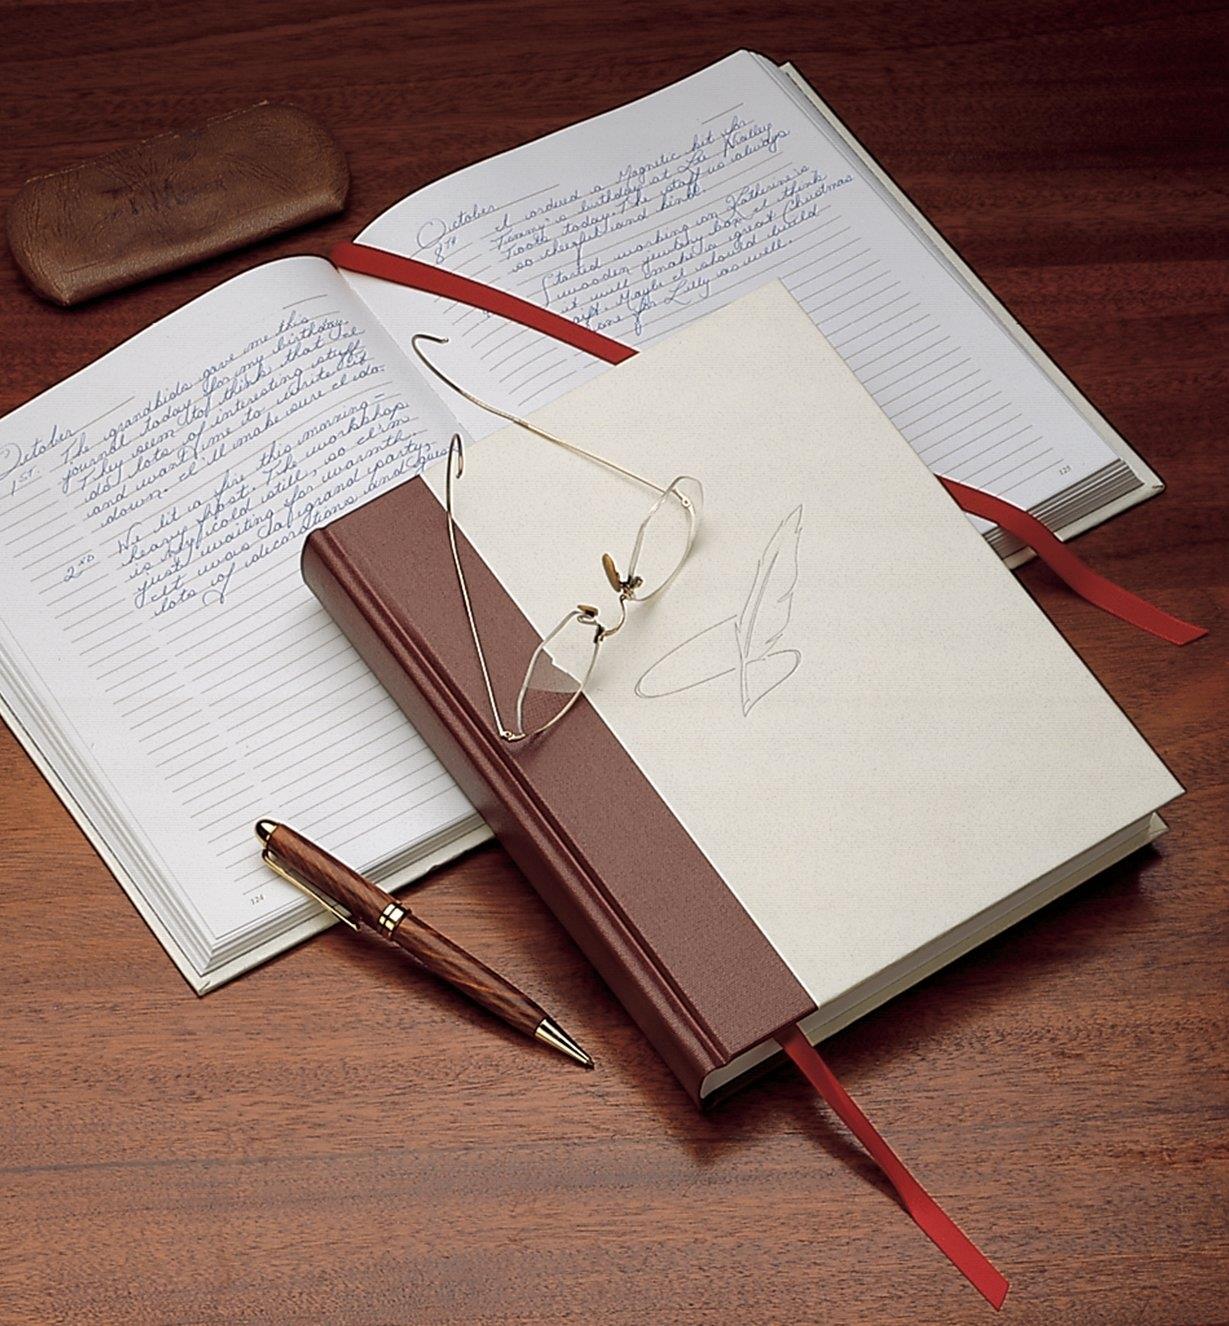 October
1ST.
The grandkids gave me this
journal today for my birthday.
They seem to think that I've
do lots of interesting stuff
and want me to write it
down. I'll make sure I do.
2ND
We lit a fire this morning -
heavy frost. The workshop
is icy cold still, so I'm
just waiting for warmth.
It was a grand party,
lots of decorations and
124
October
8TH
I ordered a Magnetic bit for
Timmy's birthday at Lee Valley
Tools today. The staff is always
so cheerful and kind.
Started working on Katherine's
wooden jewelry box. I think
it will make a great Christmas
gift. Maybe I should build
one for Lilly as well.
125